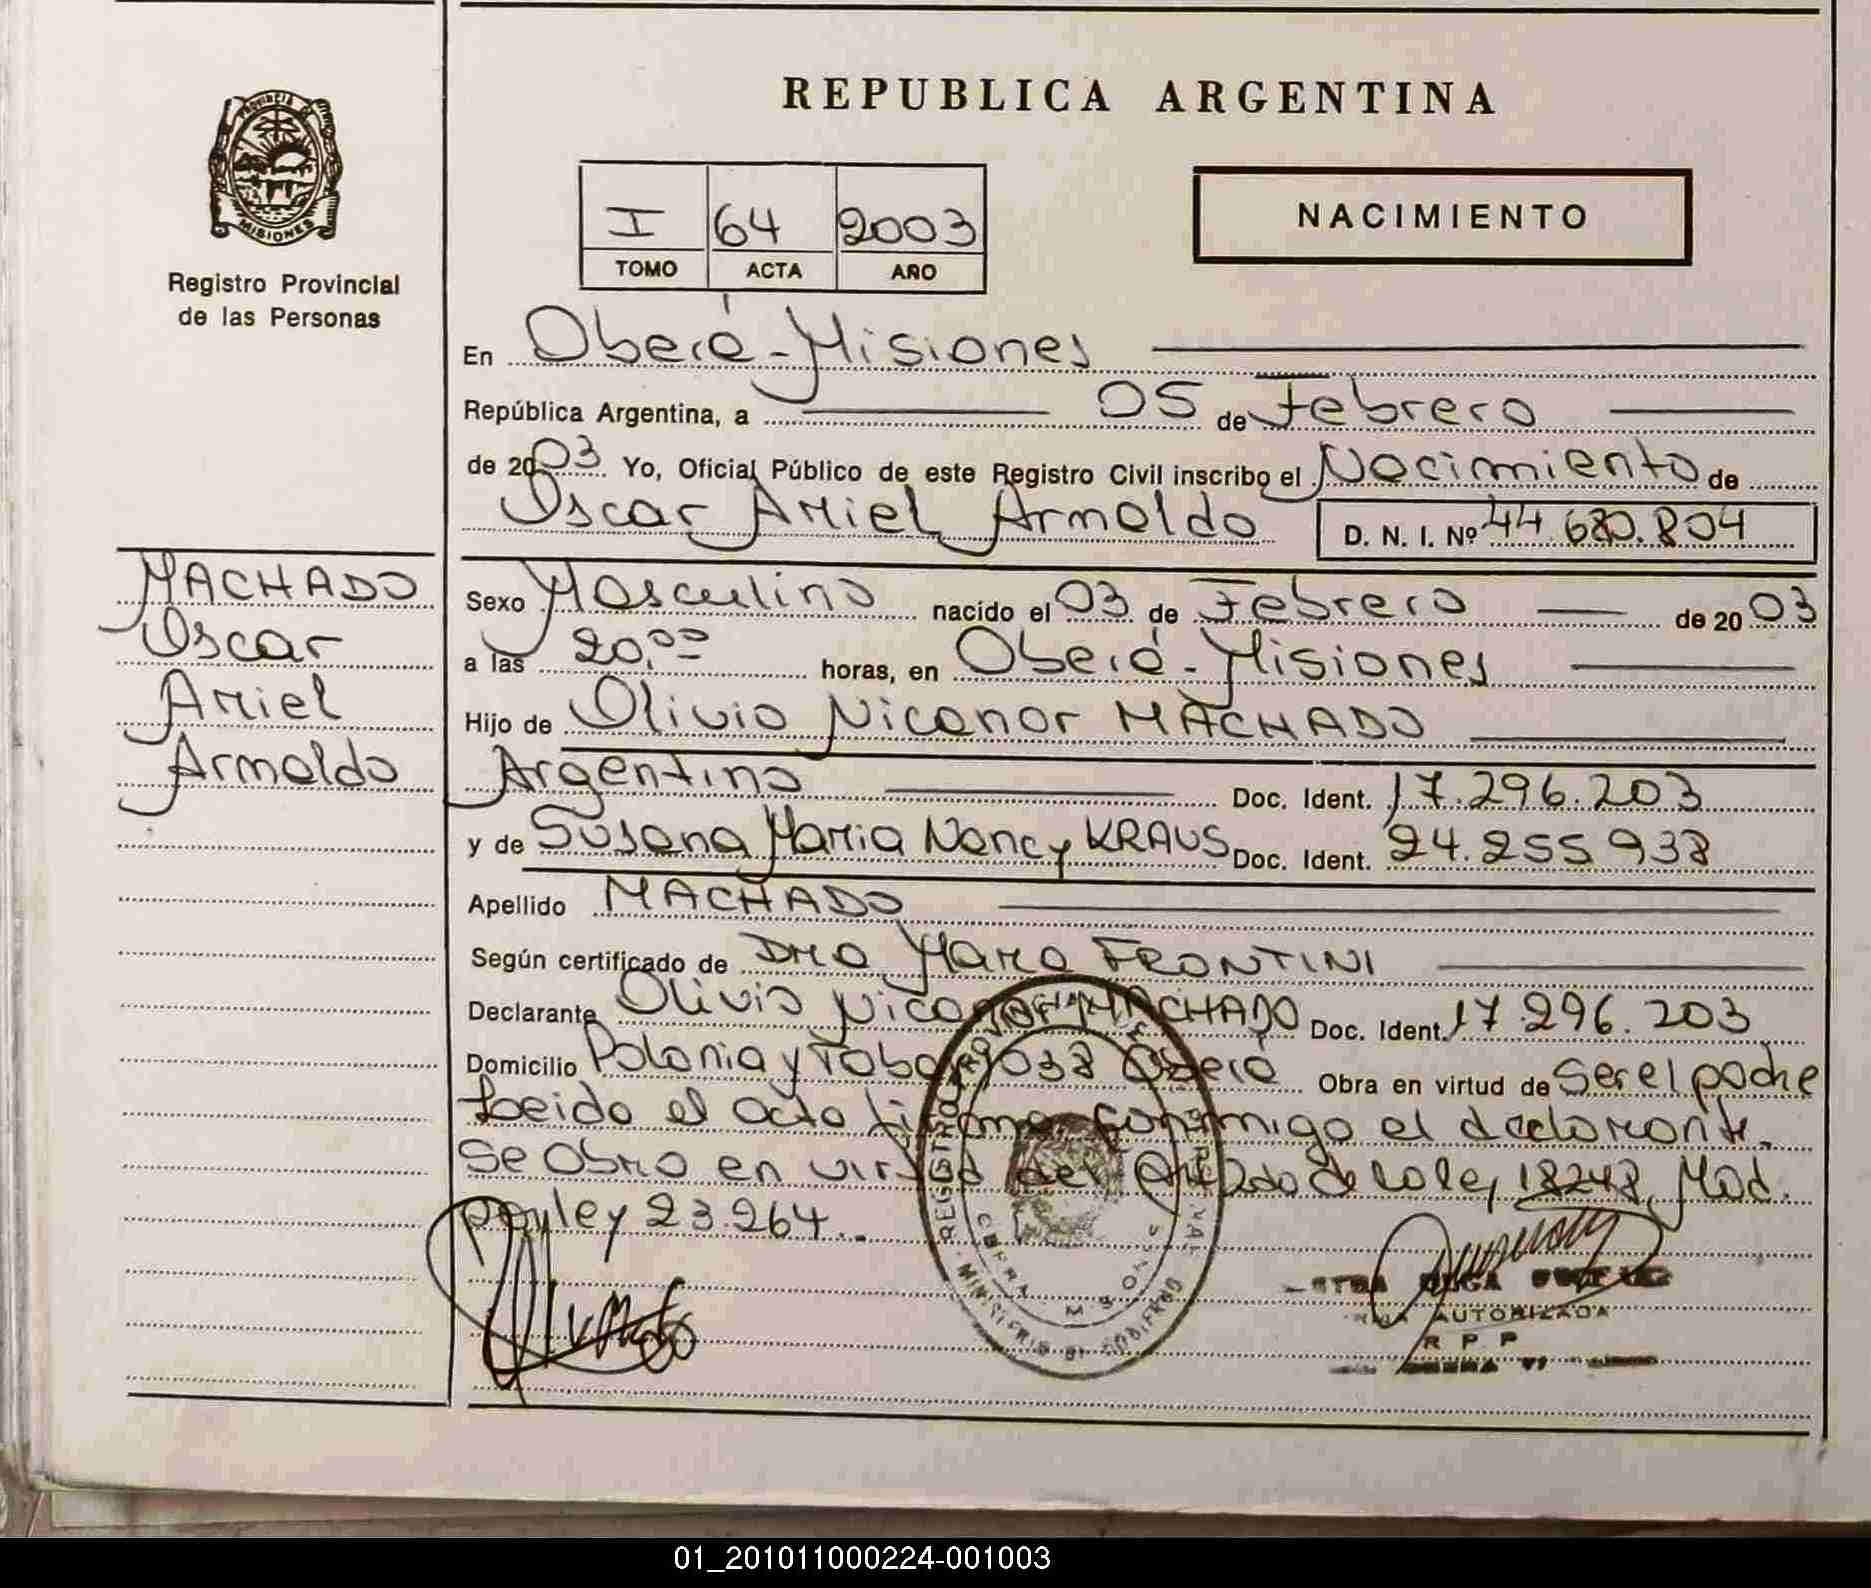 REPUBLICA ARGENTINA
PROVINCIA DE
MISIONES
Registro Provincial
de las Personas
I 64 2003
TOMO ACTA AÑO
NACIMIENTO
En Oberá-Misiones
República Argentina, a 05 de Febrero
de 2003 Yo, Oficial Público de este Registro Civil inscribo el Nacimiento de
Oscar Ariel Arnoldo D. N. I. Nº 44.680.804
MACHADO
Oscar
Ariel
Arnoldo
Sexo Masculino nacido el 03 de Febrero de 2003
a las 20,00 horas, en Oberá-Misiones
Hijo de Olivio Nicanor MACHADO
Argentino Doc. Ident. 17.296.203
y de Susana Maria Nancy KRAUS Doc. Ident. 24.255938
Apellido MACHADO
Según certificado de Dra Mara FRONTINI
Declarante Olivio Nicanor MACHADO Doc. Ident. 17.296.203
Domicilio Polonia y 1038 Oberá Obra en virtud de Ser el padre
Leido el acta firma conmigo el declarante.
Se Obro en virtud del de la ley 18248, Mod.
por ley 23.264.
REGISTRO
AUTORIZADA
R P P
01_201011000224-001003